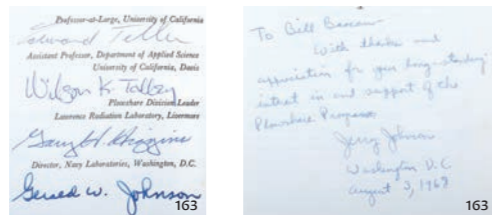 Professor-at-Large, University of California
Edward Teller
Assistant Professor, Department of Applied Science
University of California, Davis
Wilson K. Talley
Plowshare Division Leader
Lawrence Radiation Laboratory, Livermore
Gary H. Higgins
Director, Navy Laboratories, Washington, D.C.
Gerald W. Johnson
163
To Bill Bascom
With thanks and
appreciation for your long-standing
interest in and support of the
Plowshare Program
Jerry Johnson
Washington D.C.
August 3, 1969
163